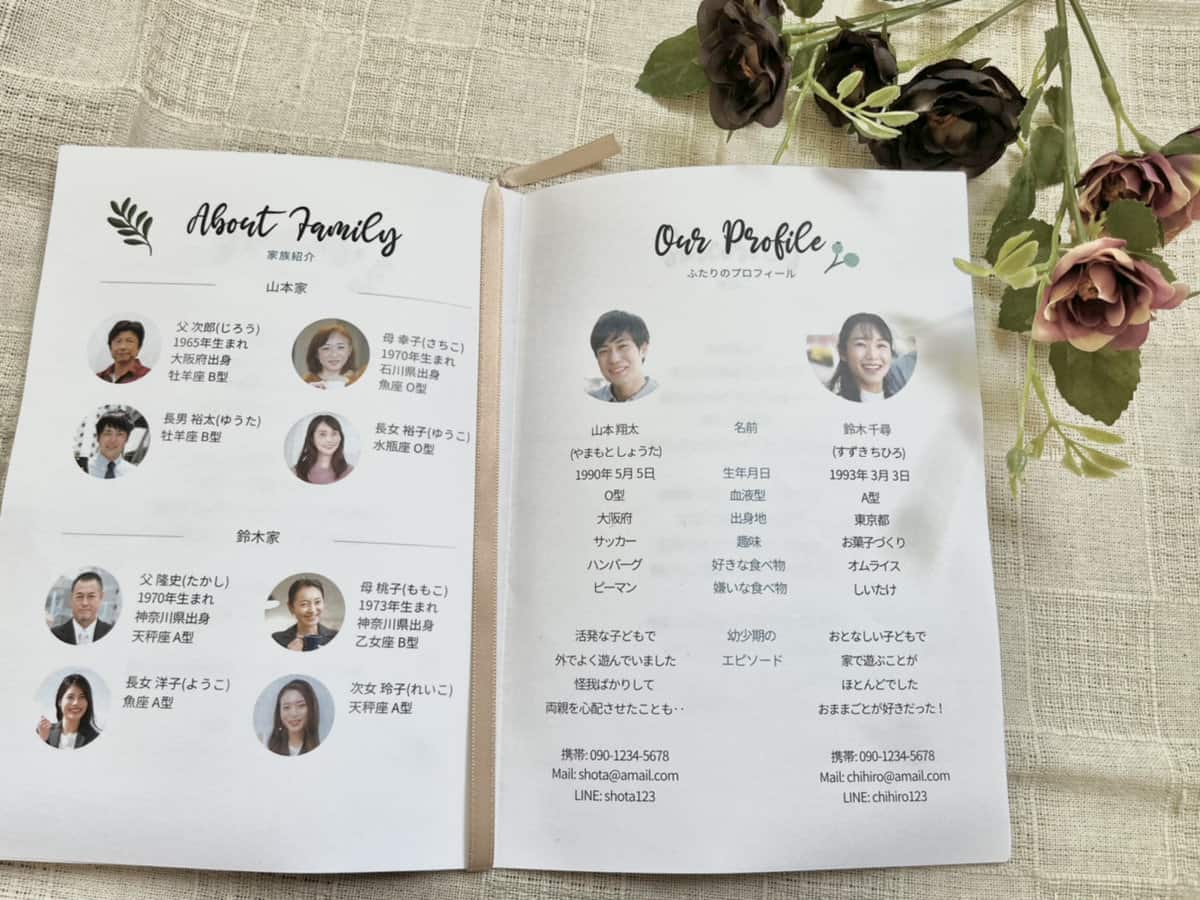 About Family
家族紹介
山本家
父 次郎(じろう)
1965年生まれ
大阪府出身
牡羊座 B型
母 幸子(さちこ)
1970年生まれ
石川県出身
魚座 O型
長男 裕太(ゆうた)
牡羊座 B型
長女 裕子(ゆうこ)
水瓶座 O型
鈴木家
父 隆史(たかし)
1970年生まれ
神奈川県出身
天秤座 A型
母 桃子(ももこ)
1973年生まれ
神奈川県出身
乙女座 B型
長女 洋子(ようこ)
魚座 A型
次女 玲子(れいこ)
天秤座 A型
Our Profile
ふたりのプロフィール
山本 翔太 名前 鈴木 千尋
(やまもと しょうた) (すずき ちひろ)
1990年 5月 5日 生年月日 1993年 3月 3日
O型 血液型 A型
大阪府 出身地 東京都
サッカー 趣味 お菓子づくり
ハンバーグ 好きな食べ物 オムライス
ピーマン 嫌いな食べ物 しいたけ
活発な子どもで 幼少期の おとなしい子どもで
外でよく遊んでいました エピソード 家で遊ぶことが
怪我ばかりして ほとんどでした
両親を心配させたことも‥ おままごとが好きだった！
携帯: 090-1234-5678 携帯: 090-1234-5678
Mail: shota@amail.com Mail: chihiro@amail.com
LINE: shota123 LINE: chihiro123